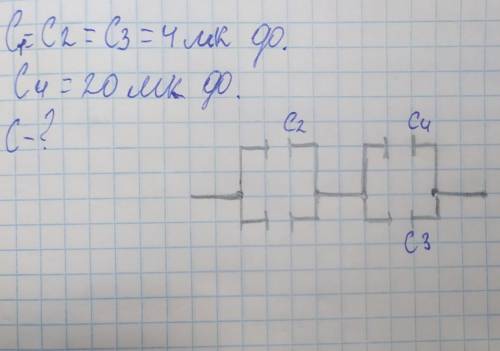 C₁=C2=C3=4мк ф.
C4=20мк ф.
C-?
C2
C4
C3